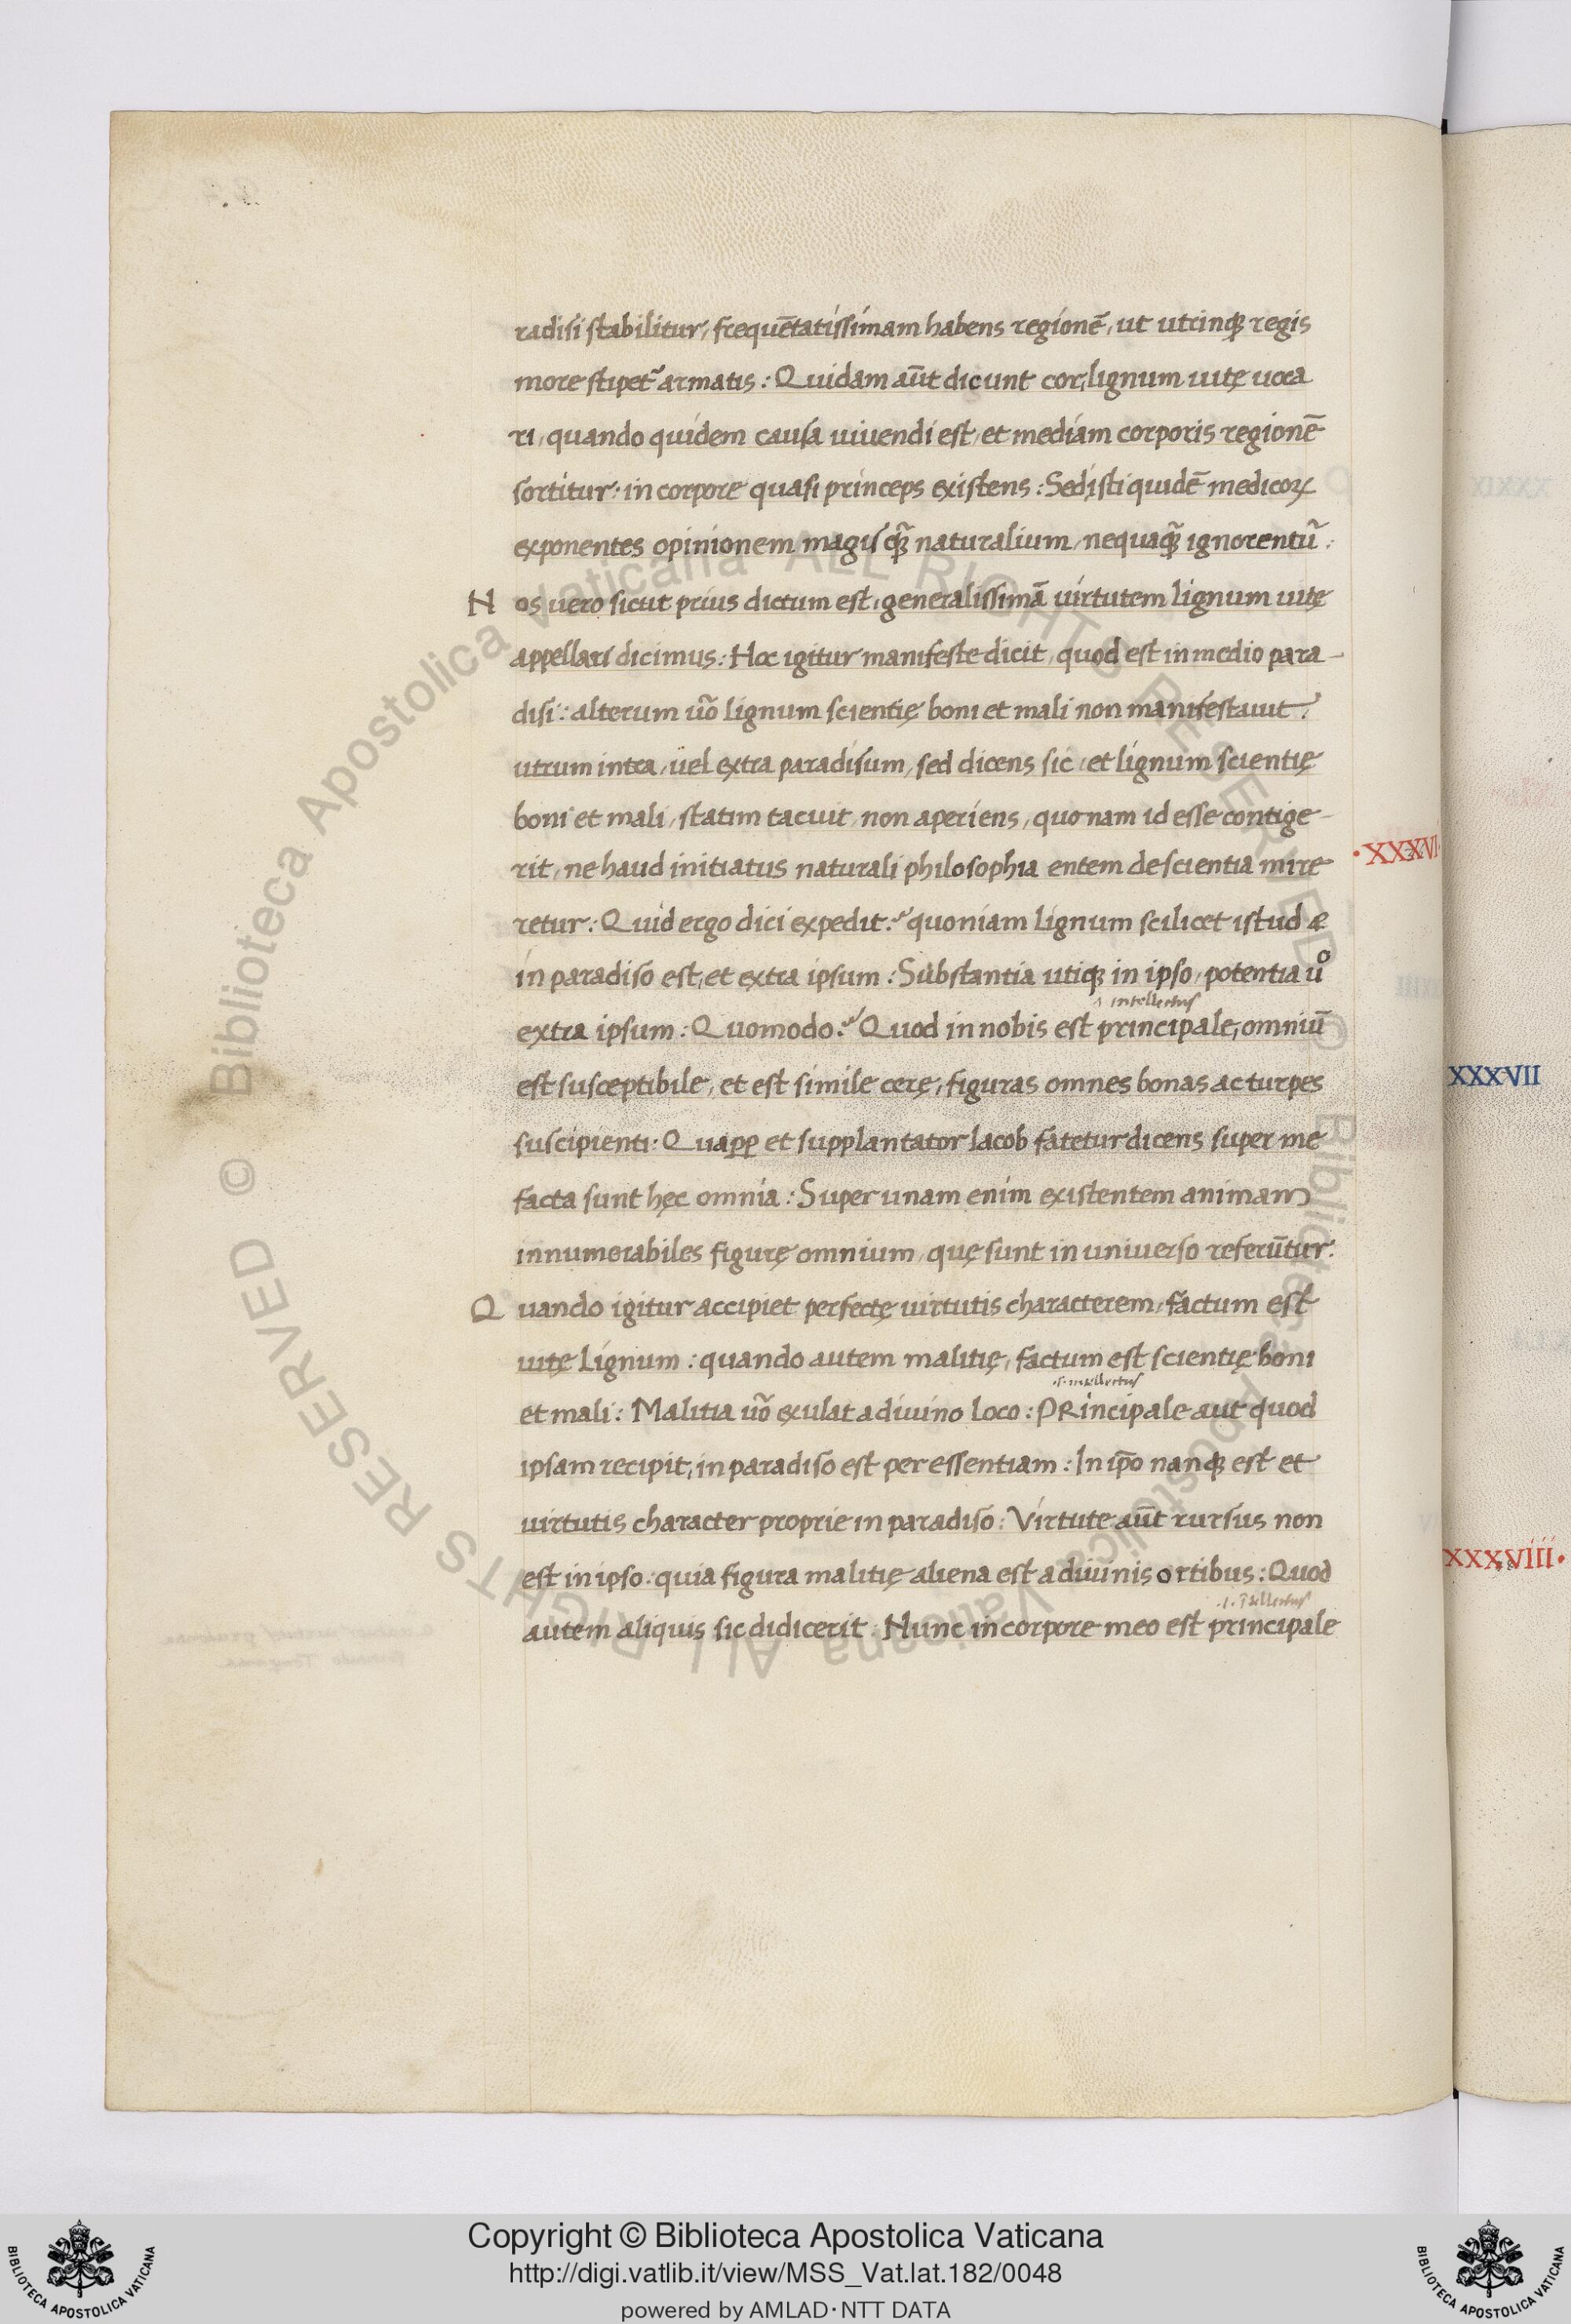 radisi stabilitur, frequētatissimam habens regionē, ut utrinqꝫ regis
more stipet᷑ armatis: Quidam aūt dicunt cor, lignum uitę uoca
ri, quando quidem causa uiuendi est, et mediam corporis regionē
sortitur: in corpore quasi princeps existens: Sed isti quidē medicoꝝ
exponentes opinionem magis qꝫ̃ naturalium, nequaqꝫ̃ ignorentũ:
Nos uero sicut prius dictum est, generalissimā uirtutem lignum uitę
appellari dicimus: Hoc igitur manifeste dicit, quod est in medio para-
disi: alterum uõ lignum scientię boni et mali non manifestauit?
utrum intra, uel extra paradisum, sed dicens sic, et lignum scientię
boni et mali, statim tacuit, non aperiens, quonam id esse contige-
rit, ne haud initiatus naturali philosophia entem de scientia mire
retur: Quid ergo dici expedit? quoniam lignum scilicet istud &
in paradiso est, et extra ipsum: Substantia utiqꝫ in ipso, potentia uº
intellectus
extra ipsum: Quomodo? Quod in nobis est principale, omniū
est susceptibile, et est simile cerę, figuras omnes bonas ac turpes
suscipienti: Quaꝓꝑ et supplantator Iacob fatetur dicens super me
facta sunt hęc omnia: Super unam enim existentem animam
innumerabiles figurę omnium, quę sunt in uniuerso referūtur.
Quando igitur accipiet perfectę uirtutis characterem, factum est
uitę lignum: quando autem malitię, factum est scientię boni
.i. intellectus
et mali: Malitia uõ exulat a diuino loco: PRincipale aut quod
ipsam recipit, in paradiso est per essentiam: In ip̄o nanqꝫ est et
uirtutis character proprie in paradiso: Virtute aūt rursus non
est in ipso: quia figura malitię aliena est a diuinis ortibus: Quod
.i. ītellectus
autem aliquis sic didicerit: Nunc in corpore meo est principale
·XXXVI
XXXVII
XXXVIII·
© Biblioteca Apostolica Vaticana ALL RIGHTS RESERVED © Biblioteca Apostolica Vaticana ALL RIGHTS RESERVED
Copyright © Biblioteca Apostolica Vaticana
http://digi.vatlib.it/view/MSS_Vat.lat.182/0048
powered by AMLAD·NTT DATA
BIBLIOTECA APOSTOLICA VATICANA
BIBLIOTECA APOSTOLICA VATICANA